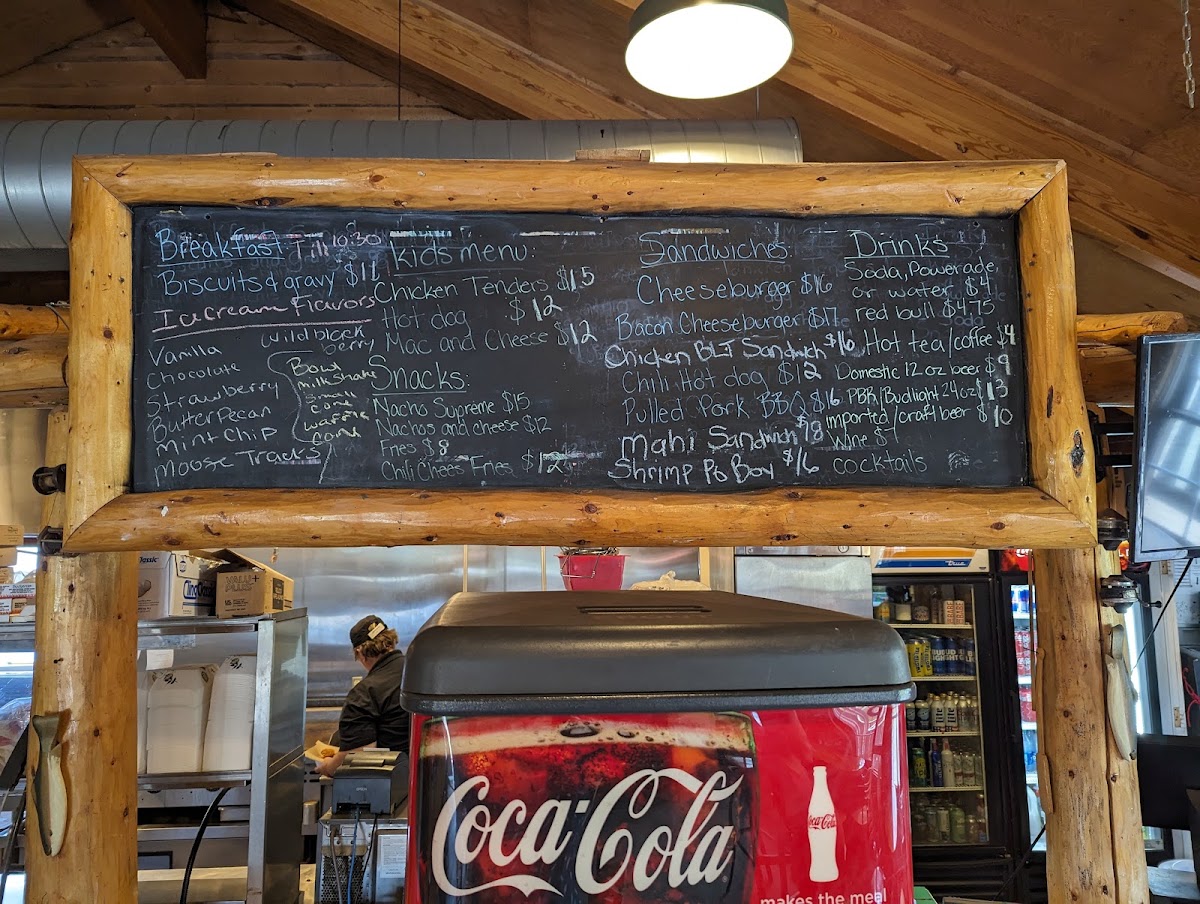 Breakfast Till 10:30
Biscuits & gravy $11
Icecream Flavors
Vanilla
Chocolate
Strawberry
Butter Pecan
Mint Chip
Moose Tracks
Wild black
berry
Bowl
milkshake
small
cone
waffle
cone
Kids menu:
Chicken Tenders $15
Hot dog $12
Mac and Cheese $12
Snacks:
Nacho Supreme $15
Nachos and cheese $12
Fries $8
Chili Chees Fries $12
Sandwiches:
Cheeseburger $16
Bacon Cheeseburger $17
Chicken BLT Sandwich $16
Chili Hot dog $12
Pulled Pork BBQ $16
Mahi Sandwich $18
Shrimp Po Boy $16
Drinks
Soda, Powerade,
or water, $4
red bull $4.75
Hot tea/coffee $4
Domestic 12 oz beer $9
PBR/Budlight 24oz $13
imported/craft beer $10
Wine $
cocktails
Coca-Cola
Coca-Cola
makes the meal